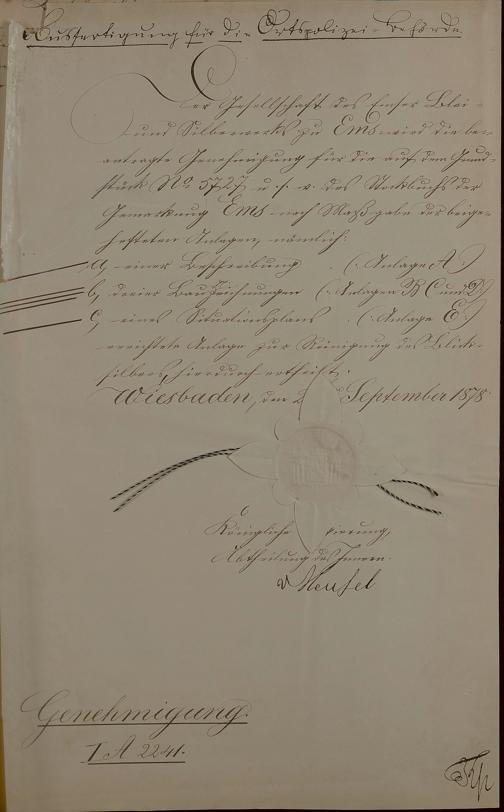 Ausfertigung für die Ortspolizei-Behörde.
Der Gesellschaft des Emser Blei-
und Silberwerks zu Ems wird die be-
antragte Genehmigung für die auf dem Grund-
stück No 5727 u. s. w. des Stockbuchs der
Gemarkung Ems nach Maßgabe der beige-
hefteten Anlagen, nämlich:
a, einer Beschreibung (: Anlage A :)
b, dreier Bauzeichnungen (: Anlagen B C und D :)
c, eines Situationsplans (: Anlage E :)
errichtete Anlage zur Reinigung des Blick-
silbers, hierdurch ertheilt.
Wiesbaden, den 2 September 1878
Königliche gierung,
Abtheilung des Innern.
v Meusel
Genehmigung.
I A 2241.